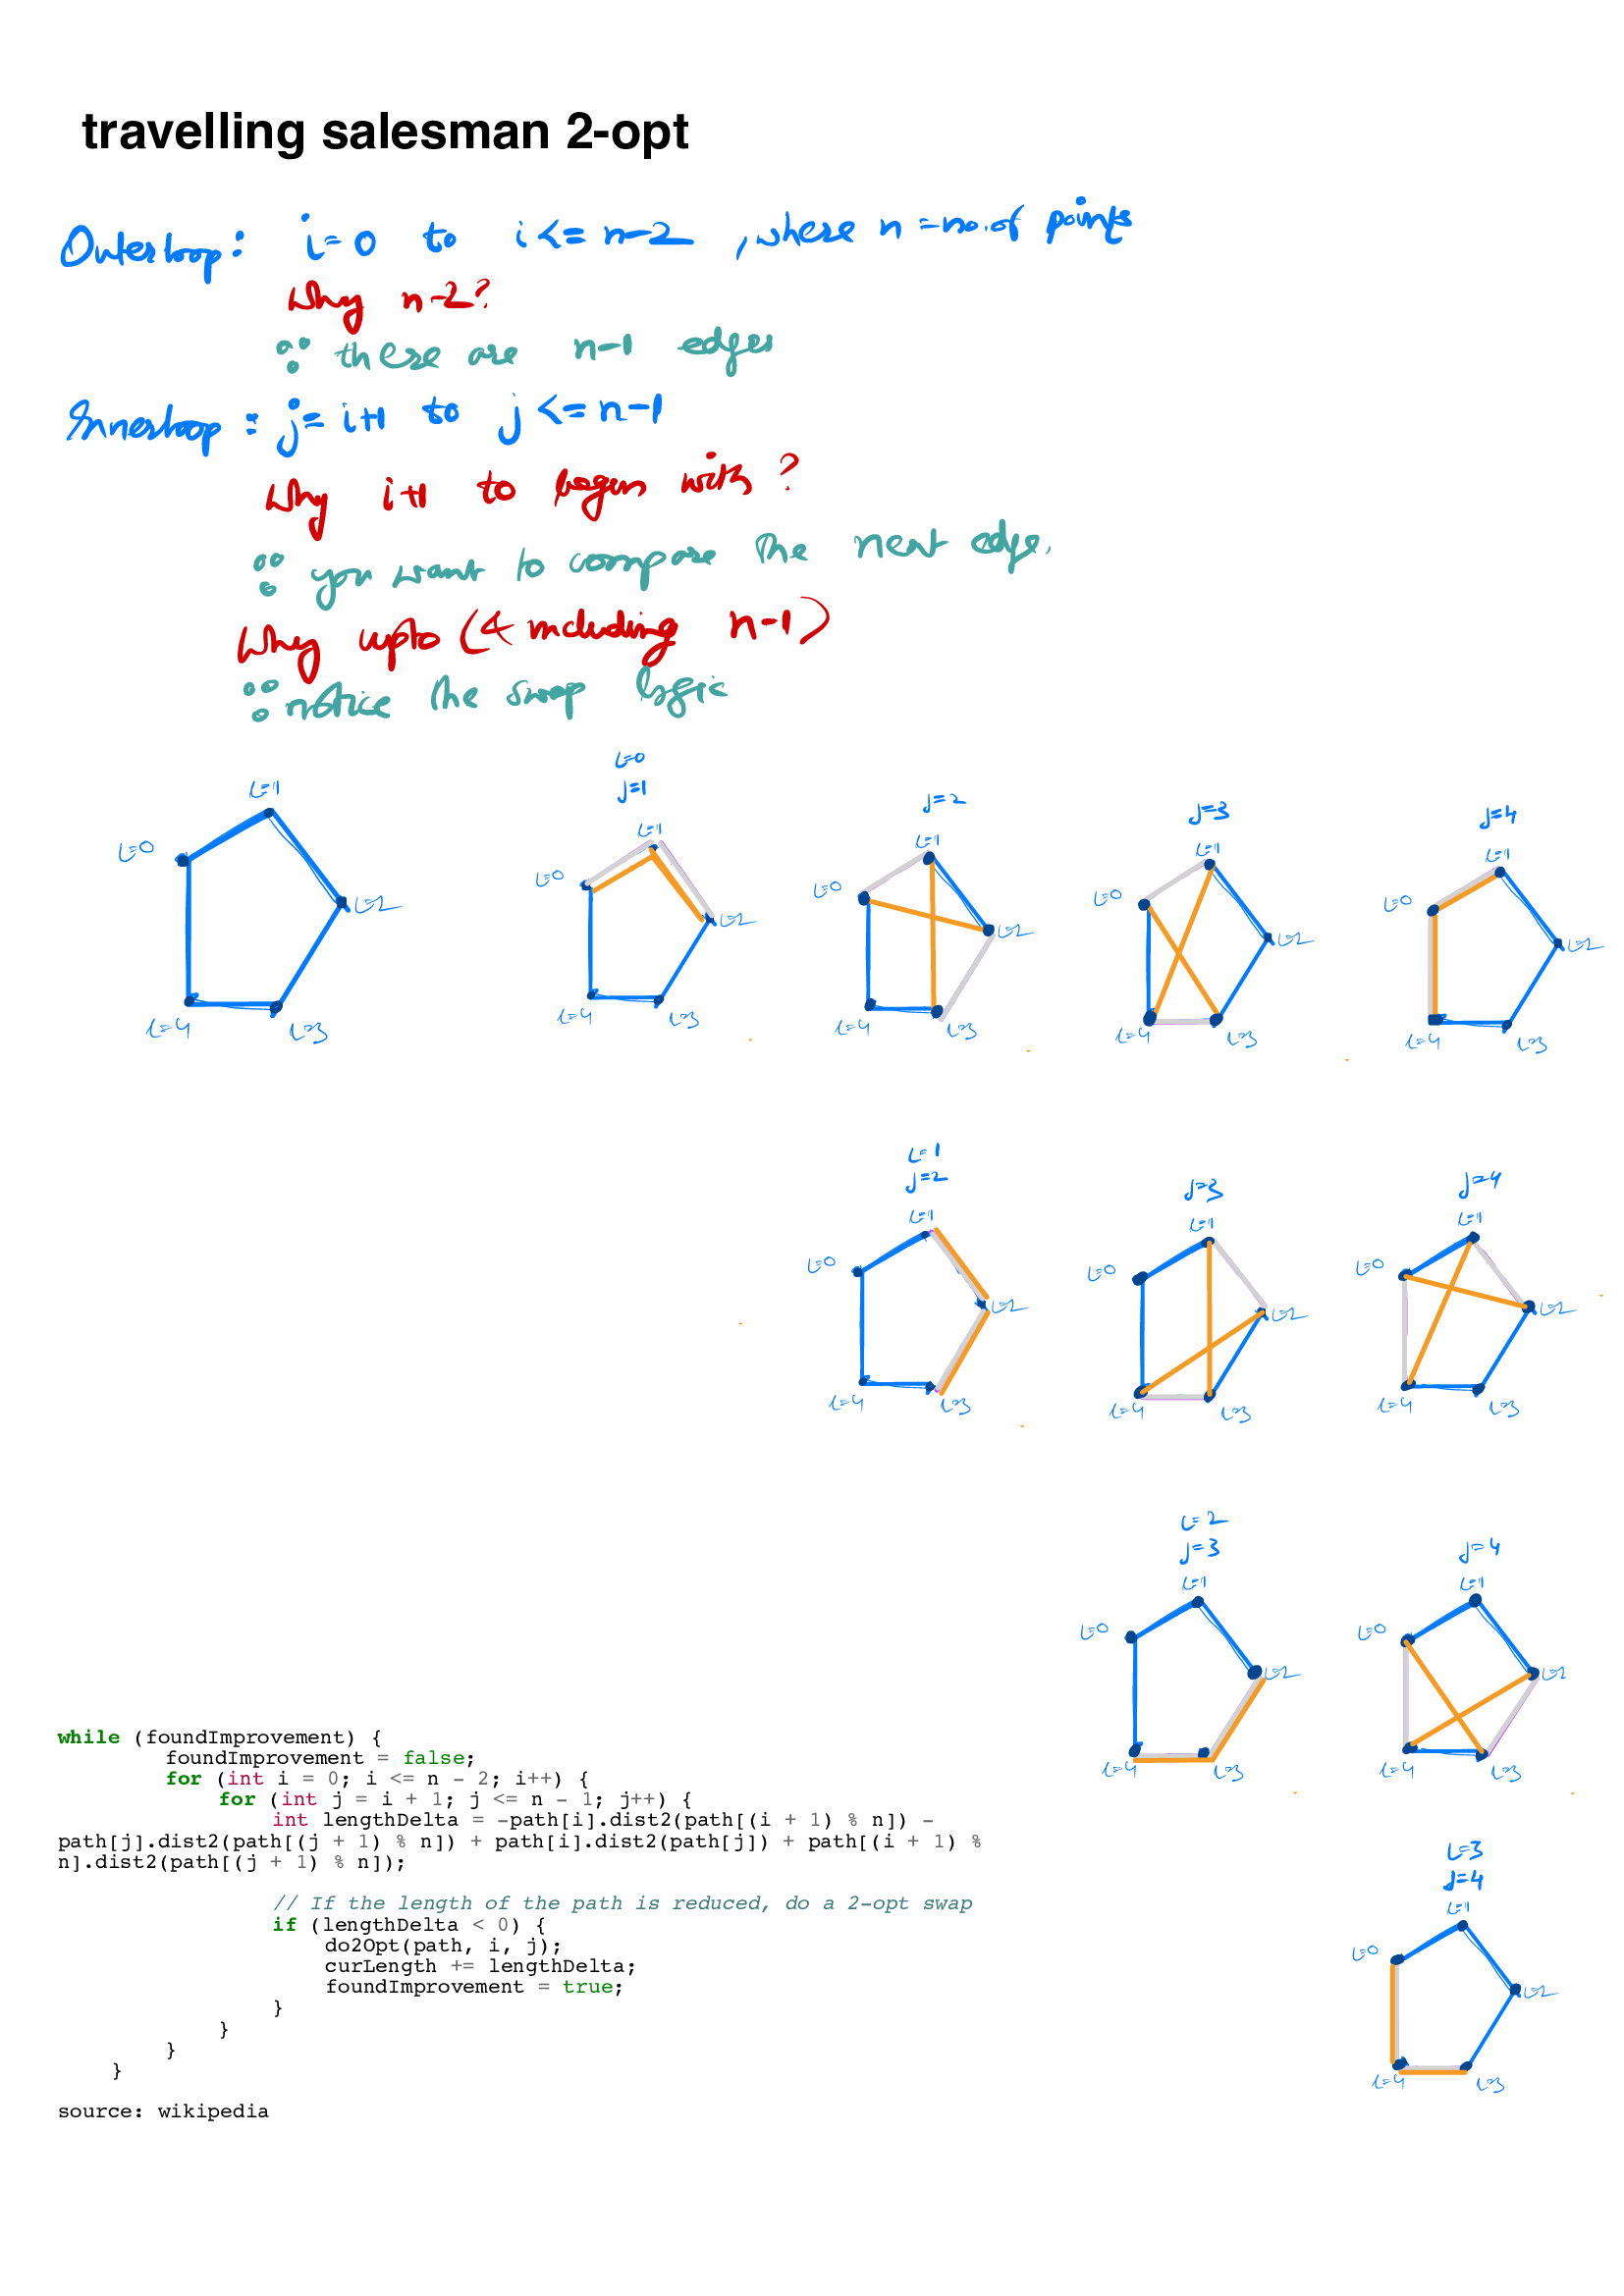 travelling salesman 2-opt
Outerloop: i=0 to i<=n-2, where n=no. of points
Why n-2?
∵ these are n-1 edges
Innerloop: j=i+1 to j<=n-1
Why i+1 to begin with?
∵ you want to compare the next edge.
Why upto (& including n-1)
∵ notice the swap logic
i=0
j=1 j=2 j=3 j=4
i=1 i=1 i=1 i=1 i=1
i=0 i=0 i=0 i=0 i=0
i=2 i=2 i=2 i=2 i=2
i=4 i=3 i=4 i=3 i=4 i=3 i=4 i=3 i=4 i=3
i=1
j=2 j=3 j=4
i=1 i=1 i=1
i=0 i=0 i=0
i=2 i=2 i=2
i=4 i=3 i=4 i=3 i=4 i=3
i=2
j=3 j=4
i=1 i=1
i=0 i=0
i=2 i=2
i=4 i=3 i=4 i=3
i=3
j=4
i=1
i=0
i=2
i=4 i=3
while (foundImprovement) {
foundImprovement = false;
for (int i = 0; i <= n - 2; i++) {
for (int j = i + 1; j <= n - 1; j++) {
int lengthDelta = -path[i].dist2(path[(i + 1) % n]) -
path[j].dist2(path[(j + 1) % n]) + path[i].dist2(path[j]) + path[(i + 1) %
n].dist2(path[(j + 1) % n]);
// If the length of the path is reduced, do a 2-opt swap
if (lengthDelta < 0) {
do2Opt(path, i, j);
curLength += lengthDelta;
foundImprovement = true;
}
}
}
}
source: wikipedia